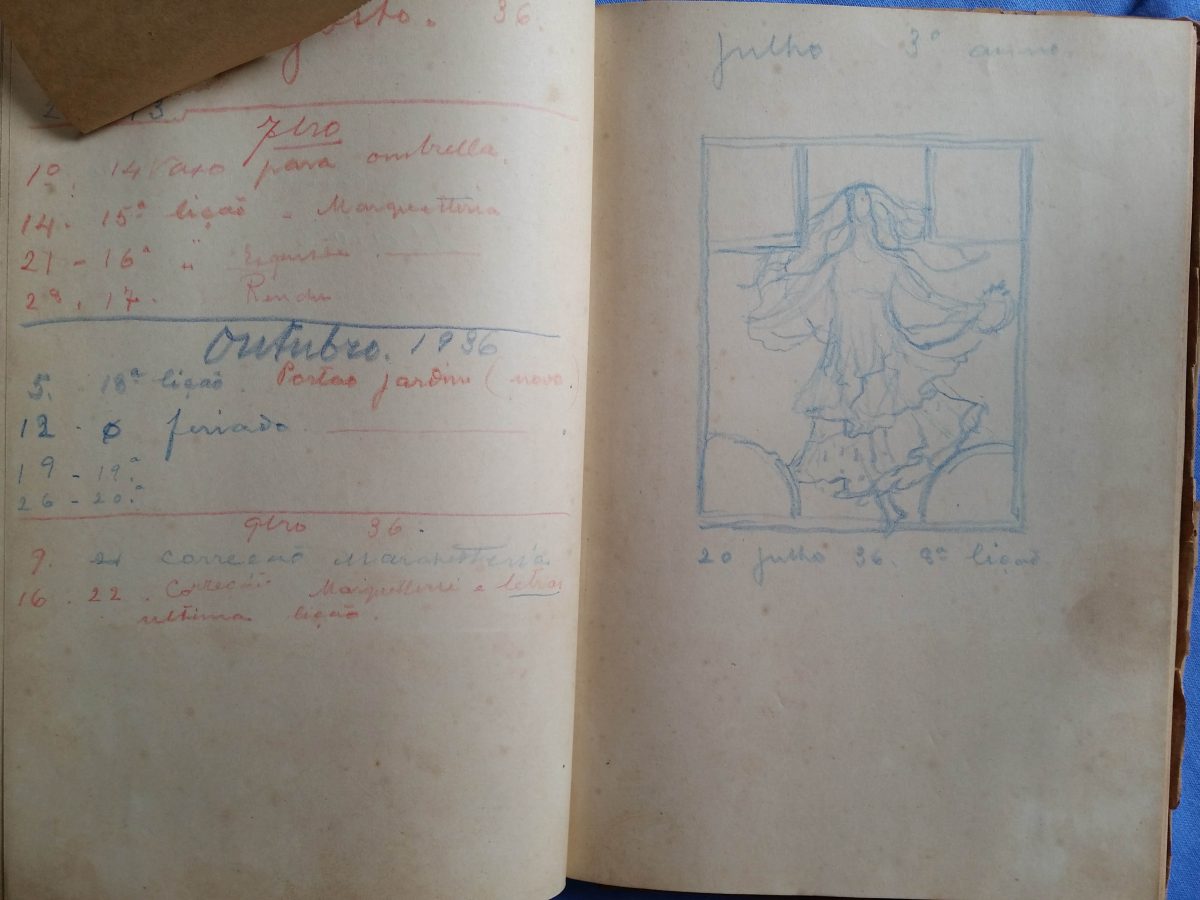 36.
7bro
10. 14 Vaso para ombrella.
14. 15ª lição - Marquetteria
21 - 16ª "
28. 17. Renda
Outubro. 1936
5. 18ª lição. Portão jardim (novo)
12. ø feriado.
19 - 19ª
26 - 20ª
9bro 36.
9. 21 correcção Marchetteria
16. 22. Correção Marquetterie e letras
ultima lição.
Julho 3º anno.
20 julho 36. 8ª lição